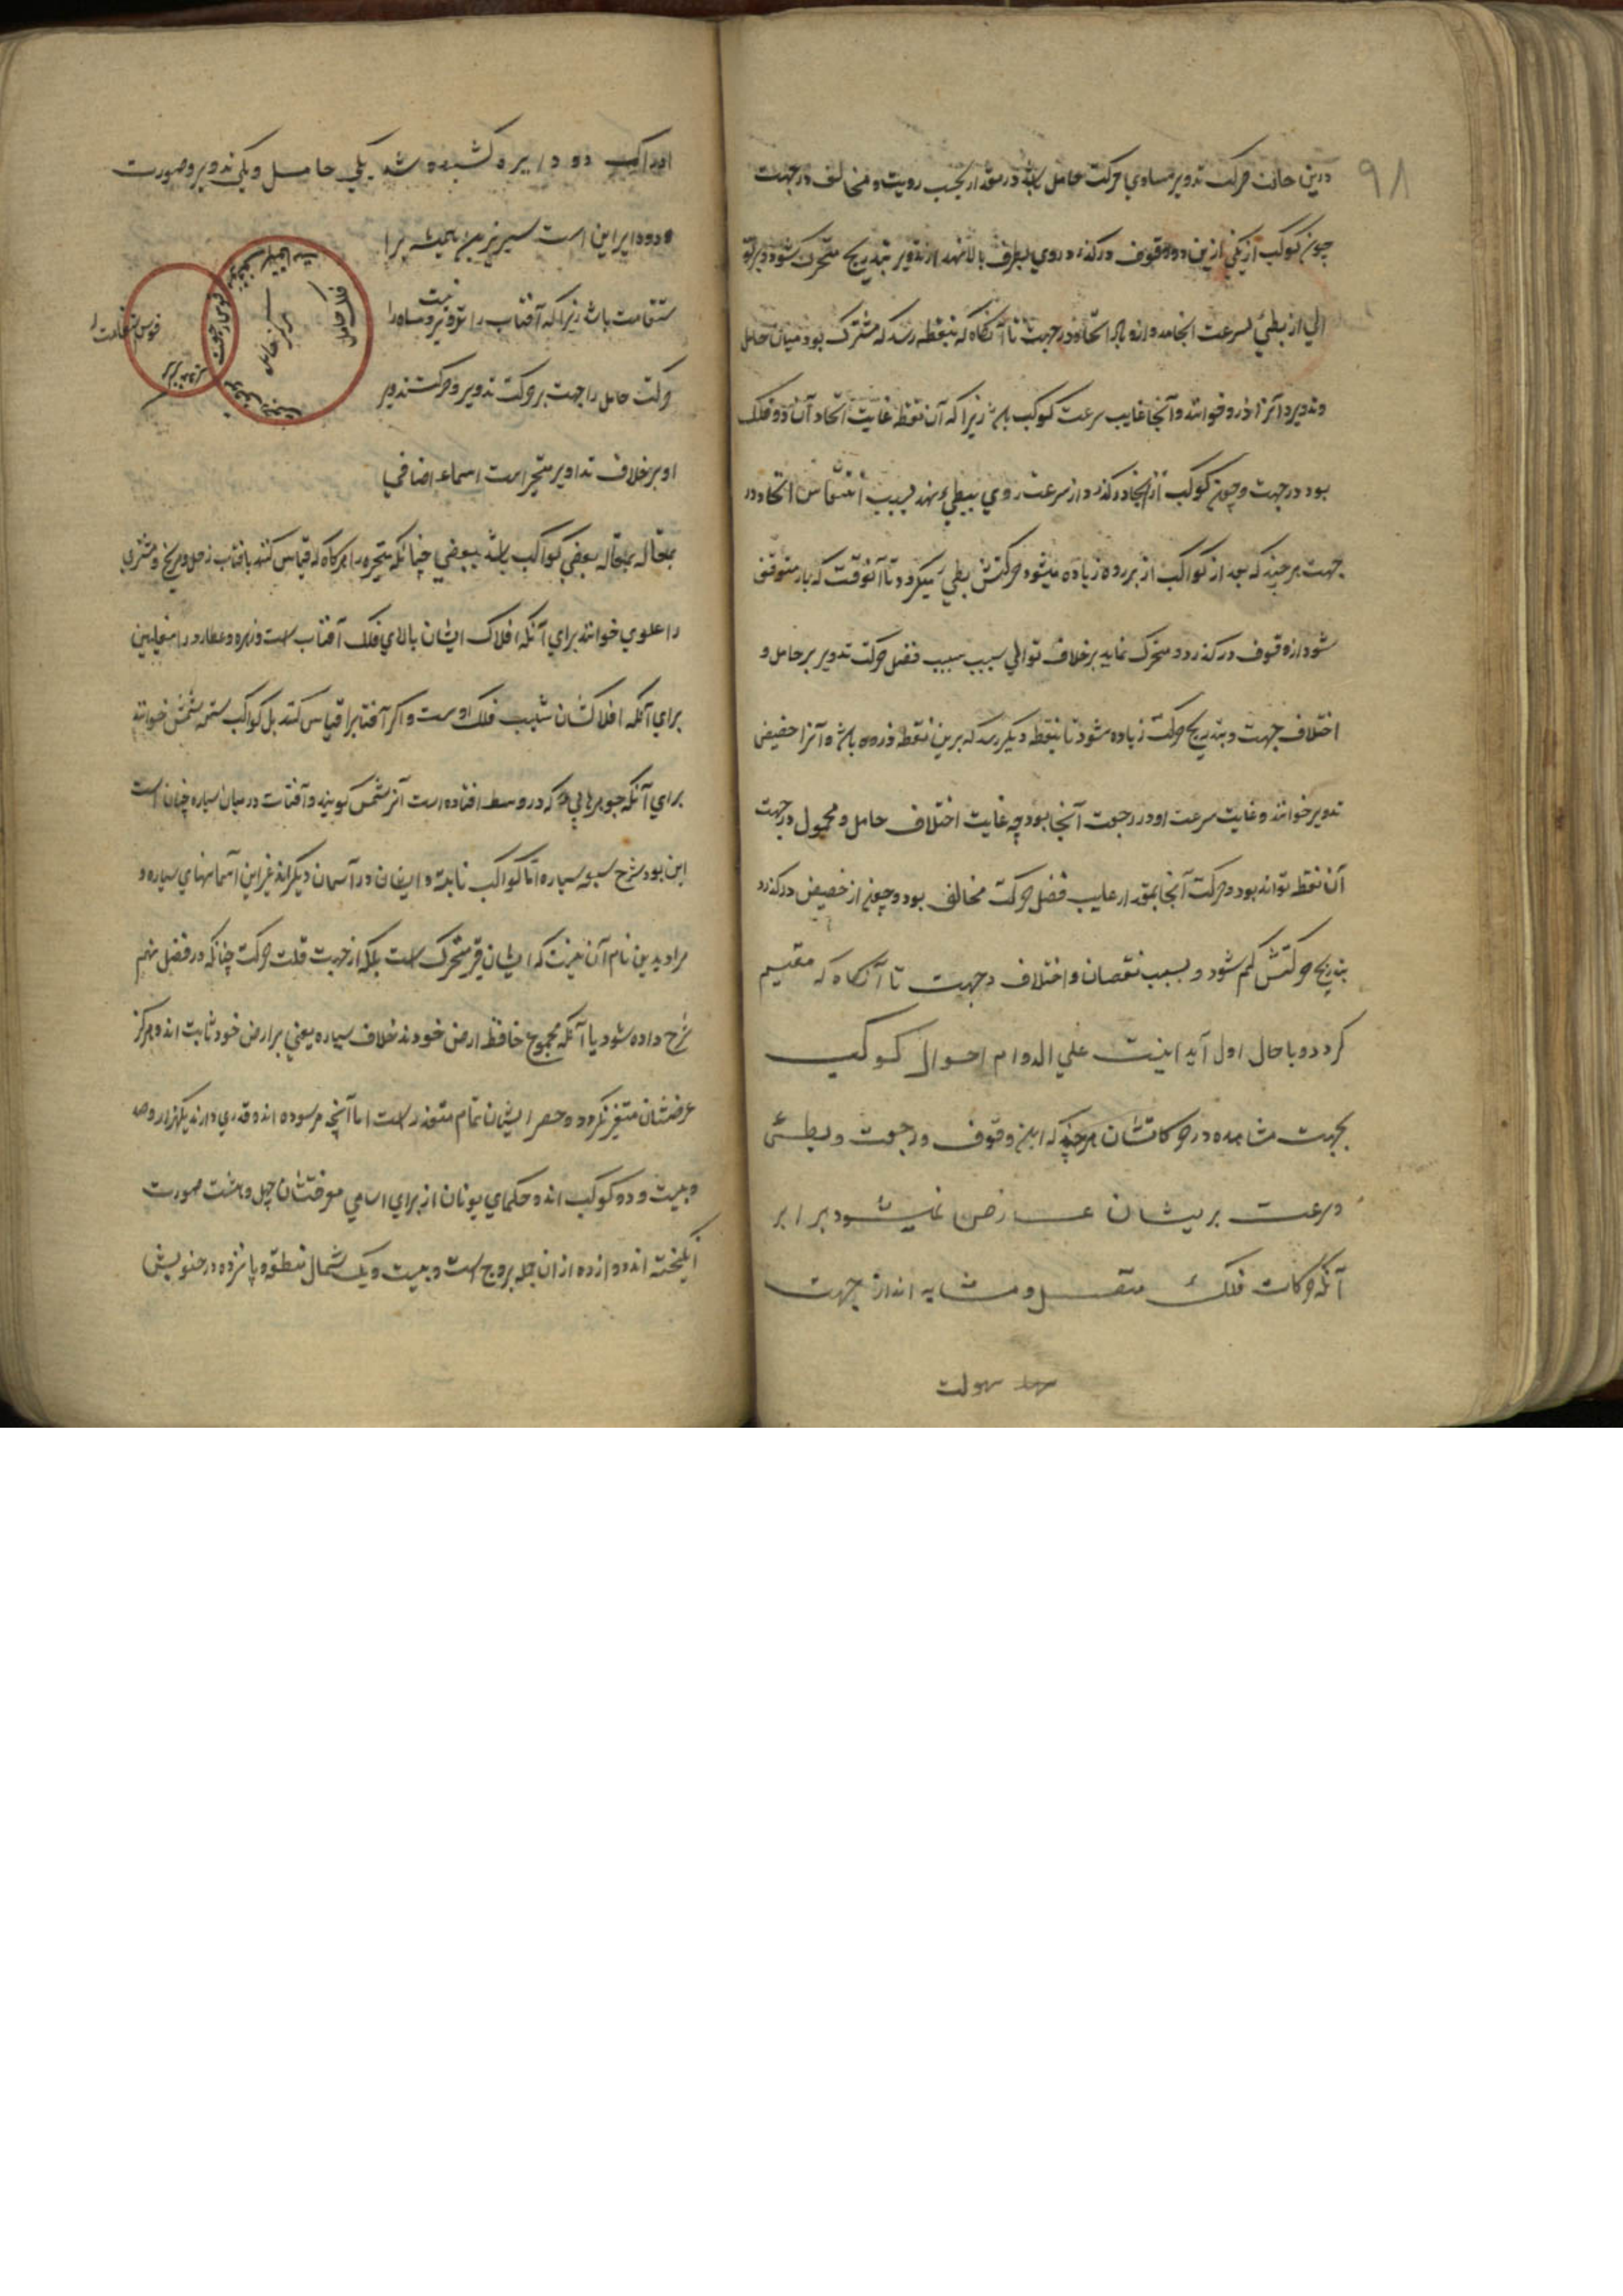 ۹۸
درین حالت حرکت تدویر مساوی حرکت حامل باشد در مقدار بحسب رویت و مخالف در جهت
چون کوکب از یکی ازین دو وقوف درکذرد و روی بطرف بالا نهد از تدویر بتدریج متحرک شود و بر تو
الی از بطئ بسرعت انجامد و ازو باد اتحاد در جهت تا آنکاه که بنقطه رسد که مشترک بود میان حامل
وتدویر و آنرا ذروه خوانند و آنجا غایب سرعت کوکب باشد زیرا که آن نقطه غایت اتحاد آن دو فلک
بود در جهت و چون کوکب از آنجا درکذرد از سرعت روی ببطی نهد بسبب انتقاص اتحاد در
جهت هر چند که بعد از کواکب از بر زیاده میشود حرکتش بطی میکردد تا آنوقت که باز متوقف
شود از وقوف درکذرد و متحرک نماید بر خلاف توالی سبب سبب فضل حرکت تدویر بر حامل و
اختلاف جهت و بتدریج حرکت زیاده شود تا بنقطه دیکر رسد که برین نقطه ذروه باشد و آنرا حضیض
تدویر خوانند و غایت سرعت او در رجعت آنجا بود چه غایت اختلاف حامل و محمول در جهت
آن نقطه تواند بود و حرکت آنجا بمقدار علیب فضل حرکت مخالف بود و چون از حضیض درکذرد
بتدریج حرکتش کم شود و بسبب نقصان و اختلاف در جهت تا آنکاه که مقیم
کردد و با حال اول آید اینست علی الدوام احوال کوکب
بجهت مشاهده در حرکاتشان هر چند که این وقوف و رجعت و بطئی
و سرعت بریشان عارض نمیشود برابر
آنکه حرکات فلک متصل و متشابه اند از جهت
سهولت
ادراک دو دایره کشیده شد یکی حامل و یکی تدویر و صورت
دو دایر این است سیر نیرین همیشه برا
ستقامت باشد زیرا که آفتاب را تدویر نیست و ماه را
حرکت حامل را جهت بر حرکت تدویر و حرکت تدویر
او بر خلاف تداویر متحیر است اسماء اضافی
فلک حامل
مرکز حامل
قوس رجعت
قوس استقامت را
بمقاله بمقاله بعضی کواکب باشد ببعضی چنانکه متحیره را هرکاه که قیاس کنند بافتاب زحل و مریخ و مشتری
را علوی خوانند برای آنکه افلاک ایشان بالای فلک آفتاب است و زهره و عطارد را سفلیین
برای آنکه افلاکشان شیب فلک اوست و اکر آفتابرا قیاس کنند بل کواکب سته شمش خوانند
برای آنکه جوهرهایی که در وسط افتاده است آنرا شمس کویند و آفتاب در میان سیاره چنان است
این بود شرح سبعه سیاره اما کواکب ثابته و ایشان در آسمان دیکراند غیر این آسمانهای سیاره و
مراد بدین نام آن نیست که ایشان غیر متحرک است بلکه از جهت قلت حرکت چنانکه در فصل نهم
شرح داده شود یا آنکه مجموع حافظ ارض خودند بخلاف سیاره یعنی بر ارض خود ثابت اند و هرکز
عرضشان متغیر نکردد و حصر ایشان تمام متعذر است اما آنچه مرسوده اند و قدری دارند یکهزار و صد
و بیست و دو کوکب اند و حکمای یونان از برای اسامی معرفتشان چهل و هشت صورت
انکیخته اند دوازده از ان جمله بروج است و بیست و یک شمال منطقه و پانزده در جنوبش